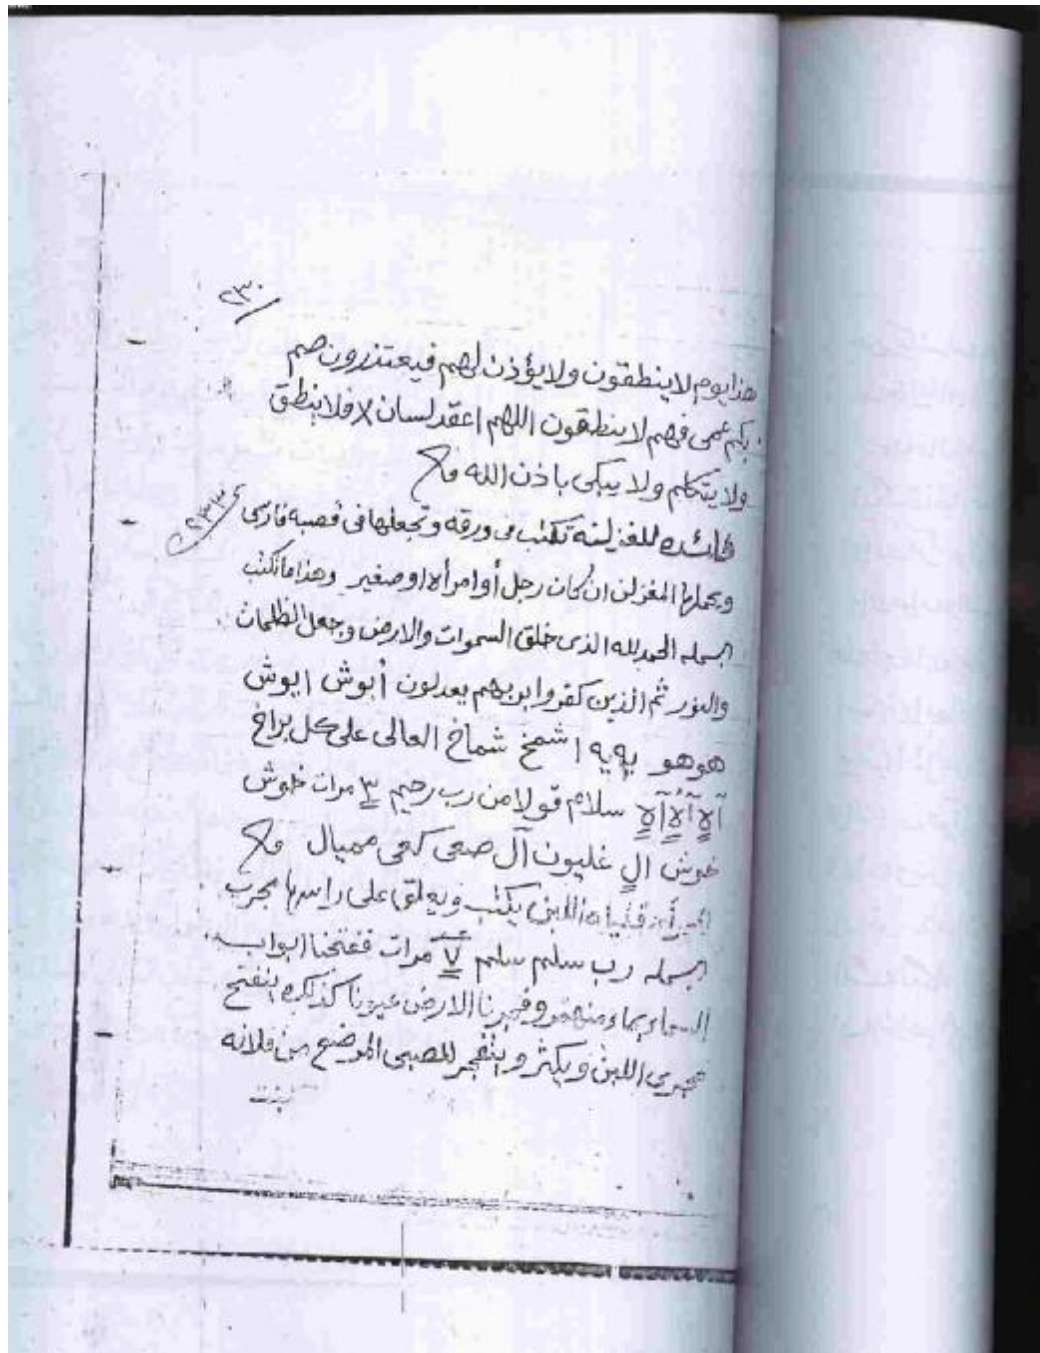 ٢٣٠
هذا يوم لا ينطقون ولا يؤذن لهم فيعتذرون صم
بكم عمى فهم لا ينطقون اللهم اعقد لسان فلا ينطق
ولا يتكلم ولا يبكى باذن الله
فائده للغزلنه تكتب فى ورقه وتجعلها فى قصبه فارسى
ويحملها المغزلن ان كان رجل أو امرأه او صغير وهذا ما تكتب
بسمله الحمد لله الذى خلق السموات والارض وجعل الظلمات
والنور ثم الذين كفروا بربهم يعدلون أبوش ابوش
هو هو يه يه اشمخ شماخ العالى على كل براخ
سلام قولا من رب رحيم ٣ مرات خوش
خوش ال غليون آل صعى كهى مميال
قليله اللبن يكتب ويعلق على راسها مجرب
بسمله رب سلم سلم ٧ مرات ففتحنا ابواب
السماء بماء منهمر وفجرنا الارض عيونا كذلك ينفتح
مجرى اللبن ويكثر وينفجر للصبى المرضع من فلانه
بنت